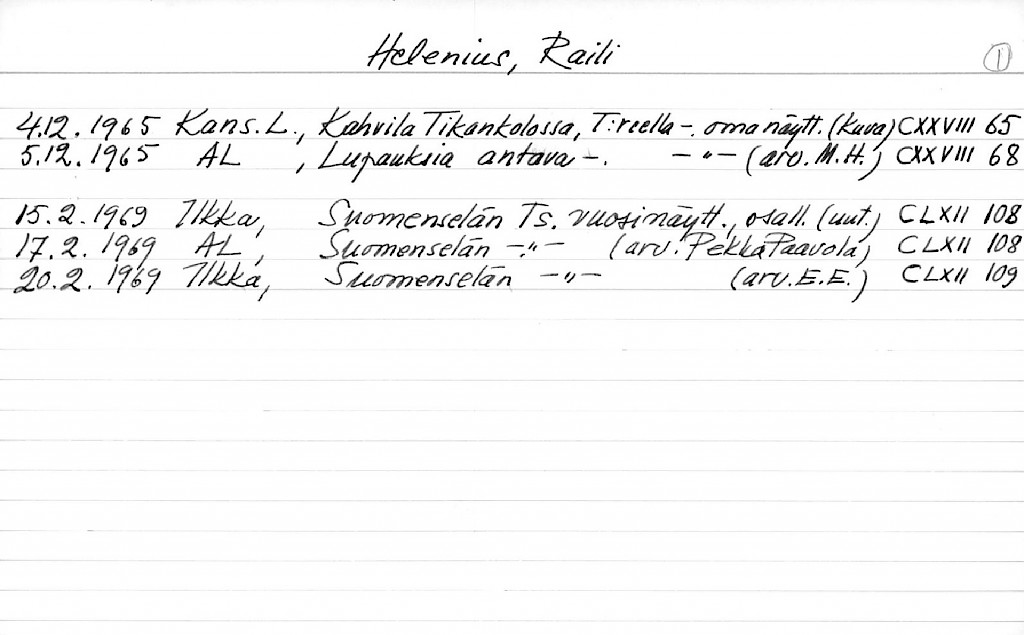 Helenius, Raili 1
4.12.1965 Kans.L., Kahvila Tikankolossa, T:reella -. oma näytt. (kuva) CXXVIII 65
5.12.1965 AL , Lupauksia antava -. -"- (arv. M.H.) CXXVIII 68
15.2.1969 Ilkka, Suomenselän Ts. vuosinäytt., osall. (uut.) CLXII 108
17.2.1969 AL, Suomenselän -"- (arv. Pekka Paavola) CLXII 108
20.2.1969 Ilkka, Suomenselän -"- (arv. E.E.) CLXII 109